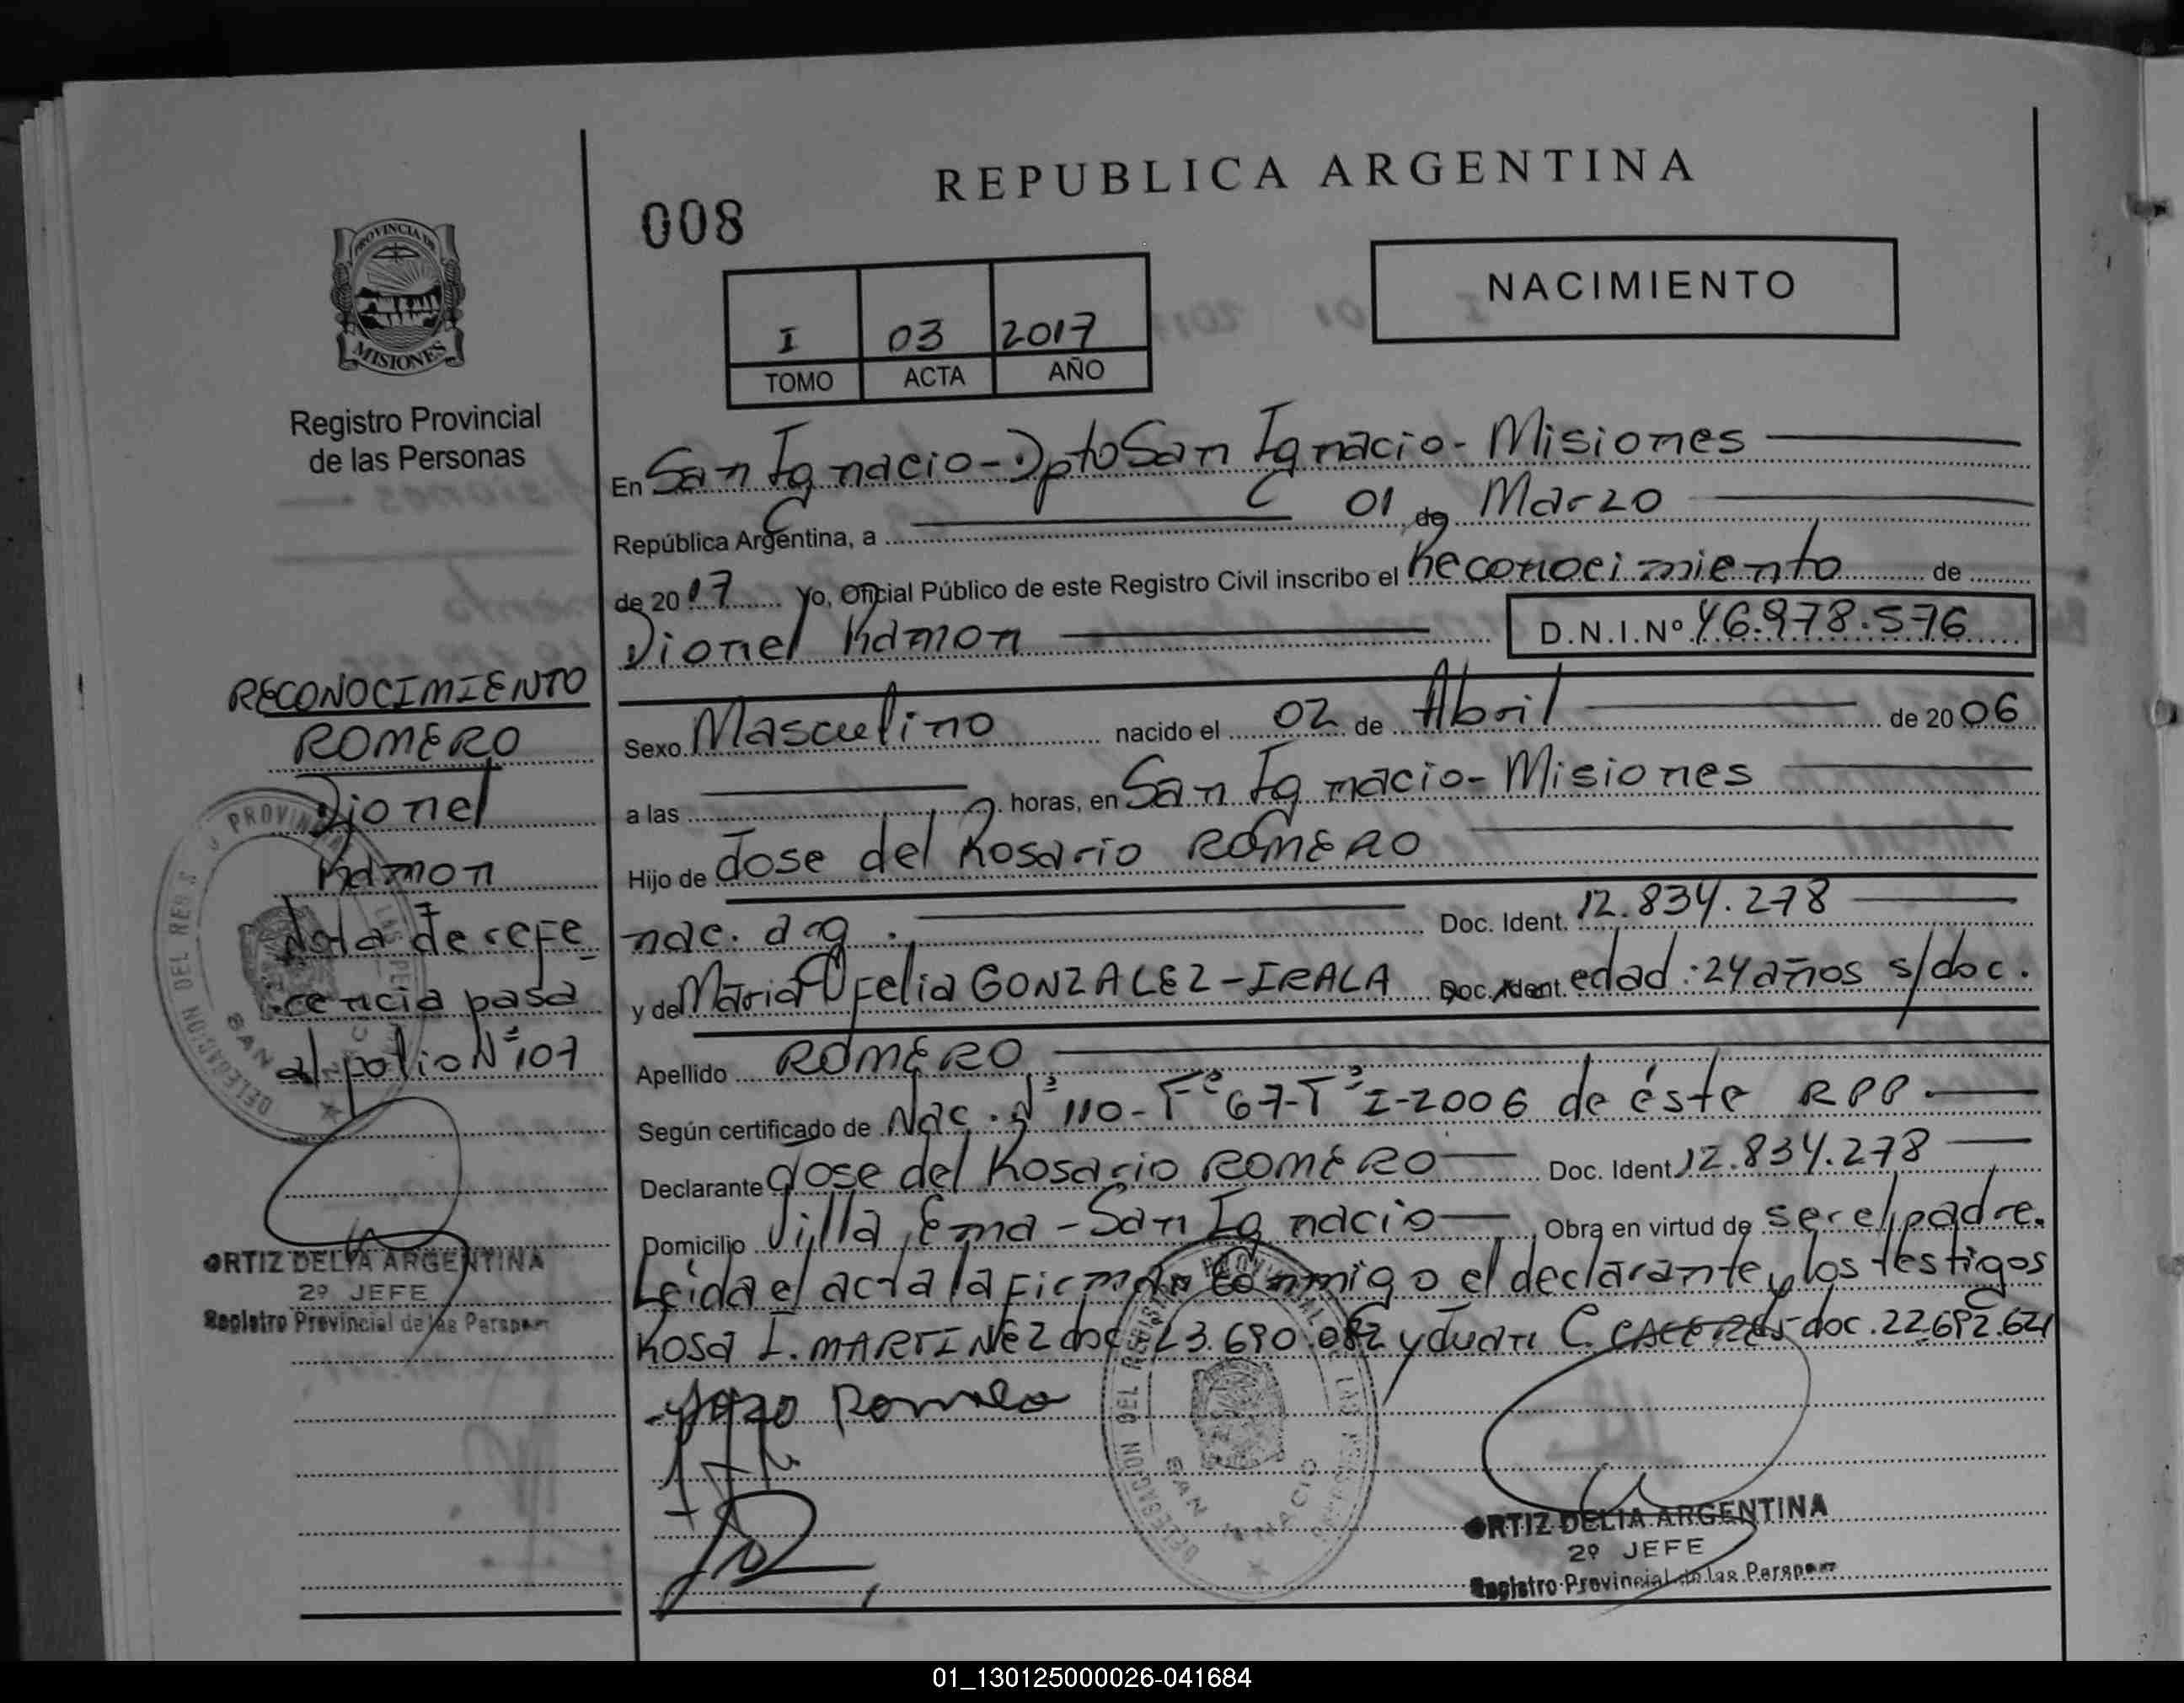 REPUBLICA ARGENTINA
008
NACIMIENTO
I 03 2017
TOMO ACTA AÑO
PROVINCIA DE
MISIONES
Registro Provincial
de las Personas
RECONOCIMIENTO
ROMERO
Dionel
Ramon
Nota de refe
rencia pasa
al folio Nº 107
ORTIZ DELIA ARGENTINA
2º JEFE
Registro Provincial de las Person
En San Ignacio - Dpto San Ignacio - Misiones
República Argentina, a 01 de Marzo
de 2017 yo, Oficial Público de este Registro Civil inscribo el Reconocimiento de
Dionel Ramon D.N.I.Nº 46.978.576
Sexo Masculino nacido el 02 de Abril de 2006
a las horas, en San Ignacio - Misiones
Hijo de Jose del Rosario ROMERO
nac. arg. Doc. Ident. 12.834.278
y de Maria Ofelia GONZALEZ - IRALA Doc. Ident. edad: 24 años s/doc.
Apellido ROMERO
Según certificado de Nac. Nº 110 - Fº 67 - Tº I - 2006 de éste RPP.
Declarante Jose del Rosario ROMERO Doc. Ident. 12.834.278
Domicilio Villa Ema - San Ignacio Obra en virtud de ser el padre.
Leida el acta la firman conmigo el declarante y los testigos
Rosa I. MARTINEZ doc 23.690.082 y Juan C. CACERES doc. 22.692.621
ORTIZ DELIA ARGENTINA
2º JEFE
Registro Provincial de las Person
01_130125000026-041684